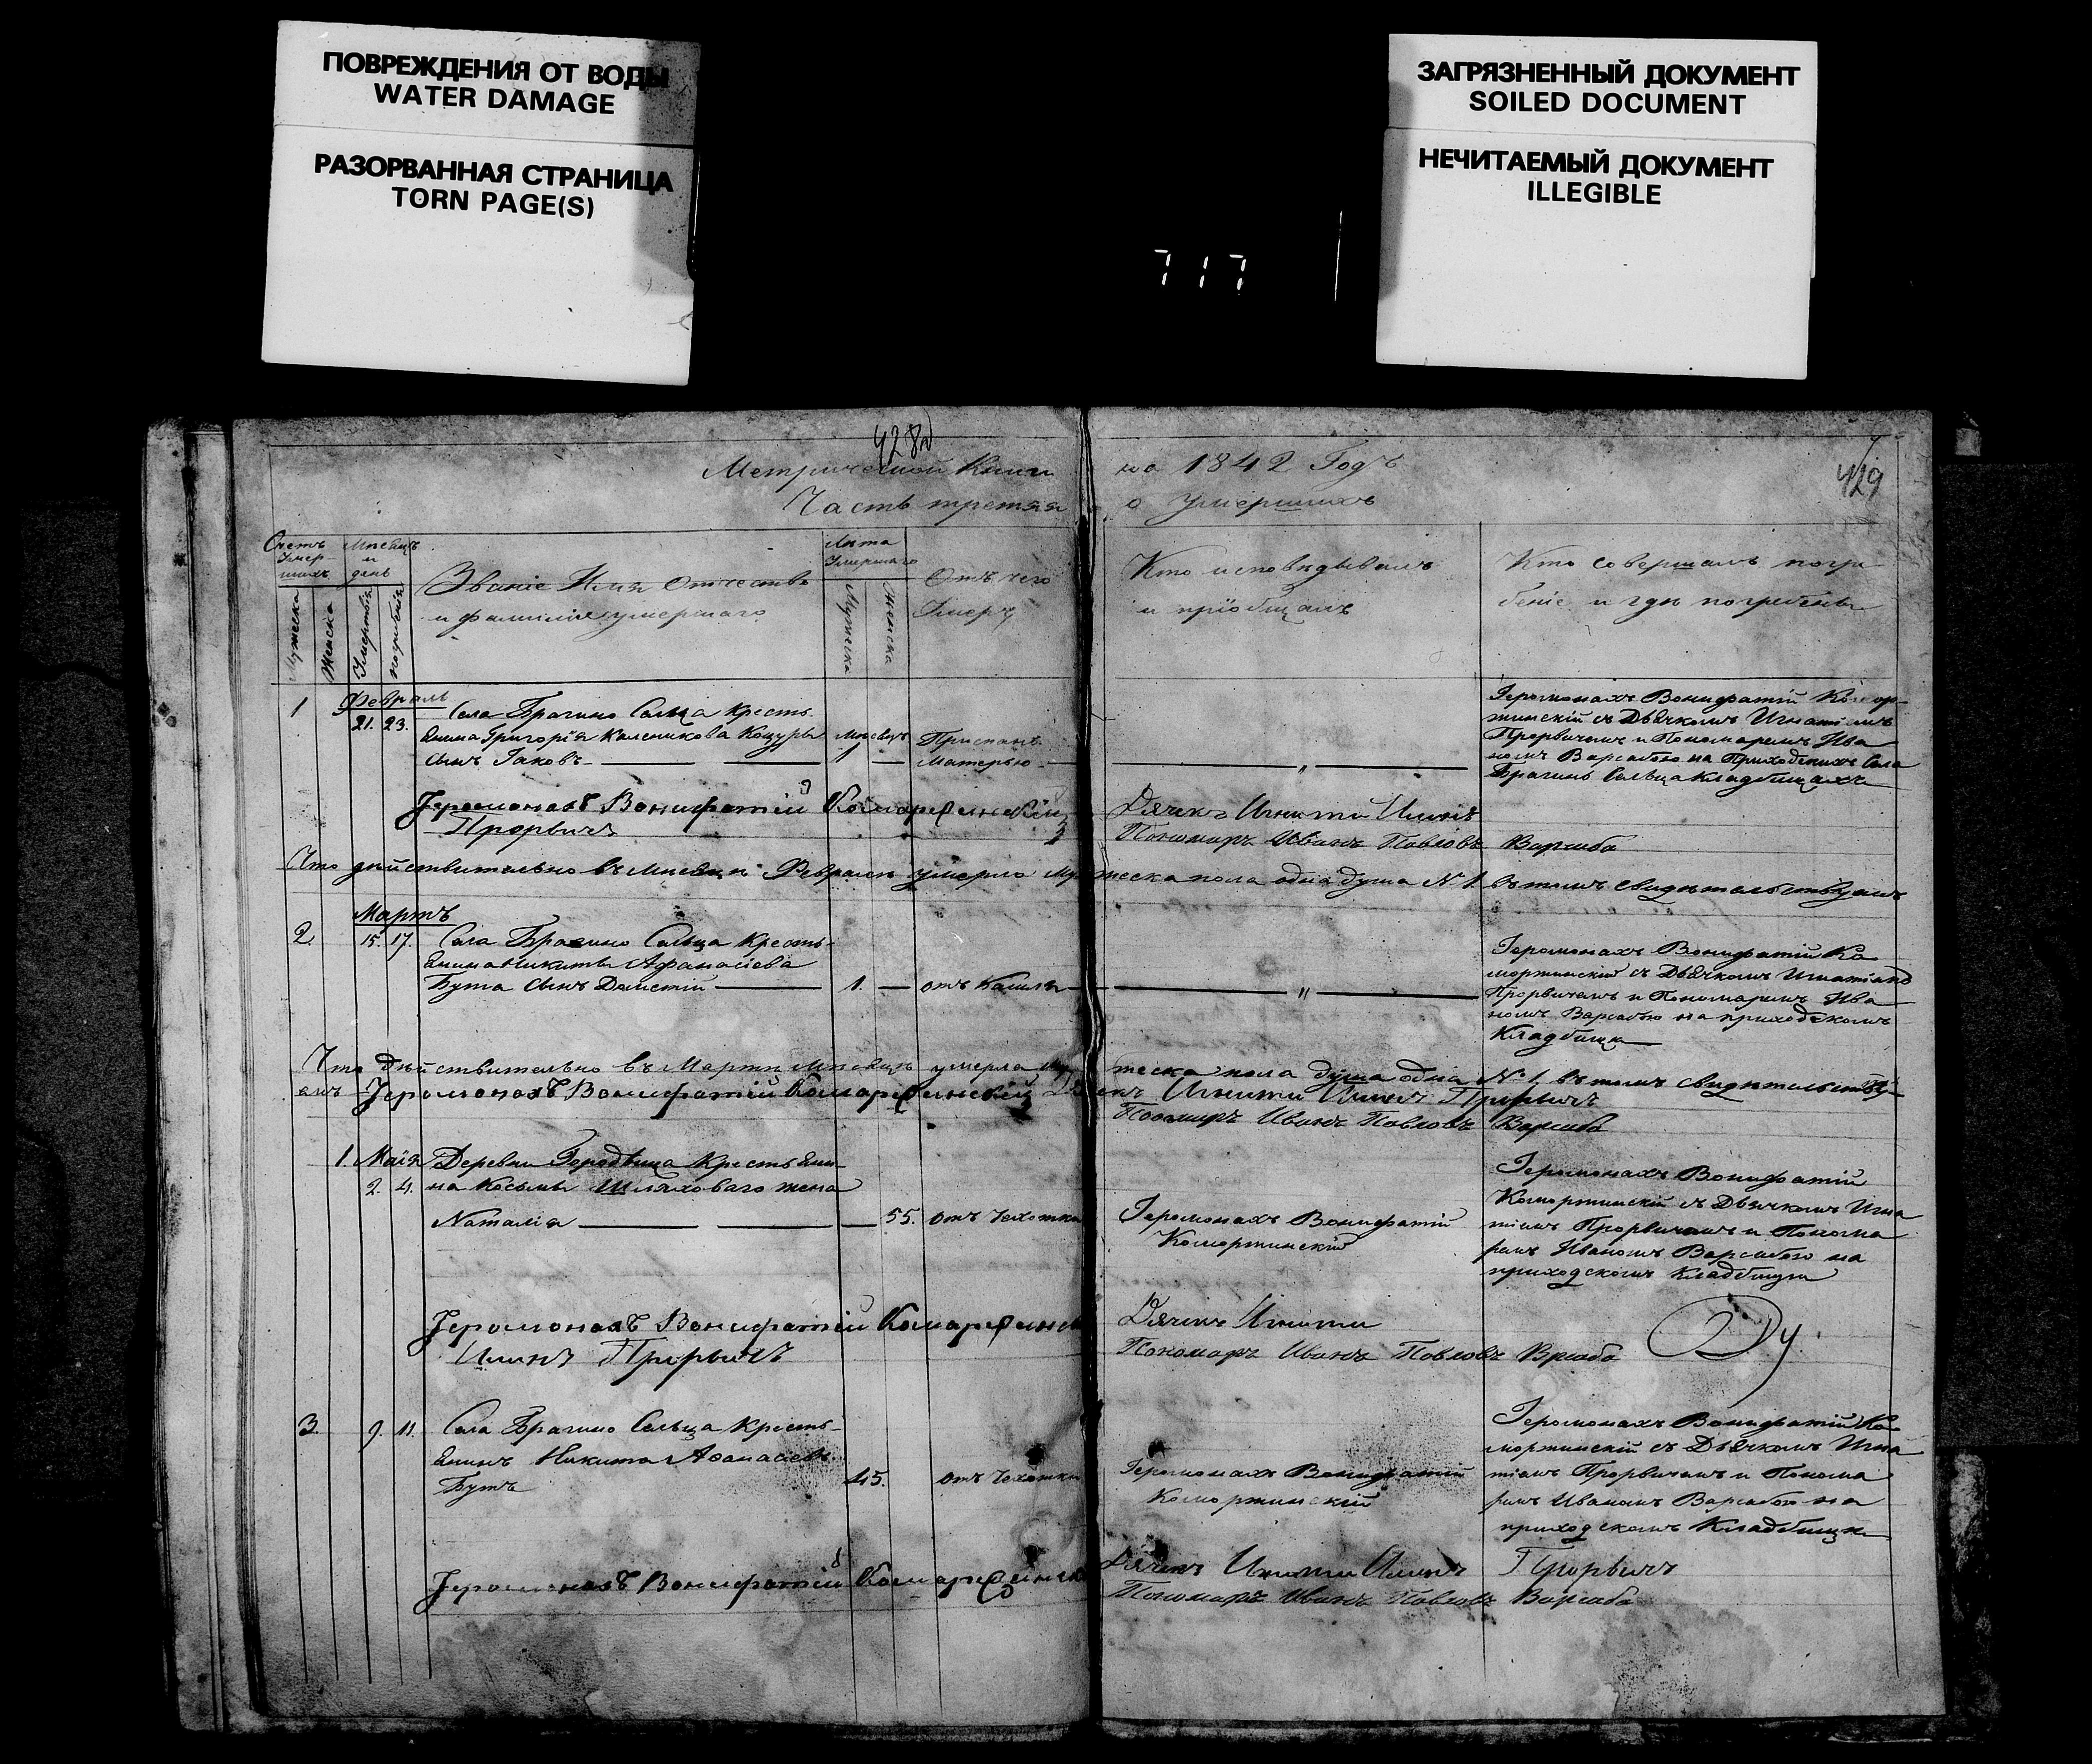 ПОВРЕЖДЕНИЯ ОТ ВОДЫ
WATER DAMAGE
РАЗОРВАННАЯ СТРАНИЦА
TORN PAGE(S)
ЗАГРЯЗНЕННЫЙ ДОКУМЕНТ
SOILED DOCUMENT
НЕЧИТАЕМЫЙ ДОКУМЕНТ
ILLEGIBLE
717
428
429
Метрической Книги на 1842 Годъ
Часть третяя о умершихъ
Счетъ умер шихъ
Мужеска
Женска
Мѣсяцъ и день
Умертвія
погребенія
Званіе Имя Отчество
и фамилія умершаго
Лѣта Умершаго
Мужеска
Женска
Отъ чего
Умеръ
Кто исповѣдывалъ
и пріобщалъ
Кто совершалъ погре
беніе и гдѣ погребены
1
Февраль
21. 23.
Села Брагино Сельца кресть-
янина Григорія Коленикова Коцуры
сынъ Іаковъ
мѣсяцъ
1
Приспанъ
Матерью
Іеромонахъ Вонифатій Комор-
жинскій съ Дьячкомъ Игнатіемъ
Прорвичемъ и Пономаремъ Ива
номъ Варсабою на Приходскихъ Села
Брагинъ Сельца кладбищахъ
Іеромонахъ Вонифатій Комаржинскій Дячекъ Игнатій Илинъ
Прорвичъ
Пономаръ Иванъ Павловъ Варсаба
Что дѣйствительно въ мѣсяцѣ Февралѣ умерло мужеска пола одна душа №1. въ томъ свидѣтельствуемъ
2
Мартъ
15. 17.
Села Брагино Сельца кресть-
янина Никиты Афанасіева
Бута сынъ
1.
отъ Кашля
Іеромонахъ Вонифатій Ко
моржинскій съ Дьячкомъ Игнатіемъ
Прорвичемъ и Пономаремъ Ива
номъ Варсабою на приходскомъ
Кладбищѣ
Что дѣйствительно въ Мартѣ Мѣсяцѣ умерла мужеска пола душа одна №1. въ томъ свидѣтельству-
емъ Іеромонахъ Вонифатій Комаржинскій Дячекъ Игнатій Илинъ Прорвичъ
Пономаръ Иванъ Павловъ Варсаба
1.
Маія
2. 4.
Деревни Городища крестьяни-
на Косьмы Шляховаго жена
Наталія
55.
отъ чехотки
Іеромонахъ Вонифатій
Коморжинскій
Іеромонахъ Вонифатій
Коморжинскій съ Дьячкомъ Игна
тіемъ Прорвичемъ и Понома
ремъ Иваномъ Варсабою на
приходскомъ кладбищѣ
Іеромонахъ Вонифатій Комаржинскій Дячекъ Игнатій
Илинъ Прорвичъ
Пономаръ Иванъ Павловъ Варсаба
3.
9. 11.
Села Брагино Сельца кресть-
янинъ Никита Афанасіевъ
Бутъ
45.
отъ чехотки
Іеромонахъ Вонифатій
Коморжинскій
Іеромонахъ Вонифатій Ко
моржинскій съ Дьячкомъ Игна
тіемъ Прорвичемъ и Понома
ремъ Иваномъ Варсабою на
приходскомъ Кладбищѣ
Іеромонахъ Вонифатій Комаржинскій Дячекъ Игнатій Илинъ Прорвичъ
Пономаръ Иванъ Павловъ Варсаба